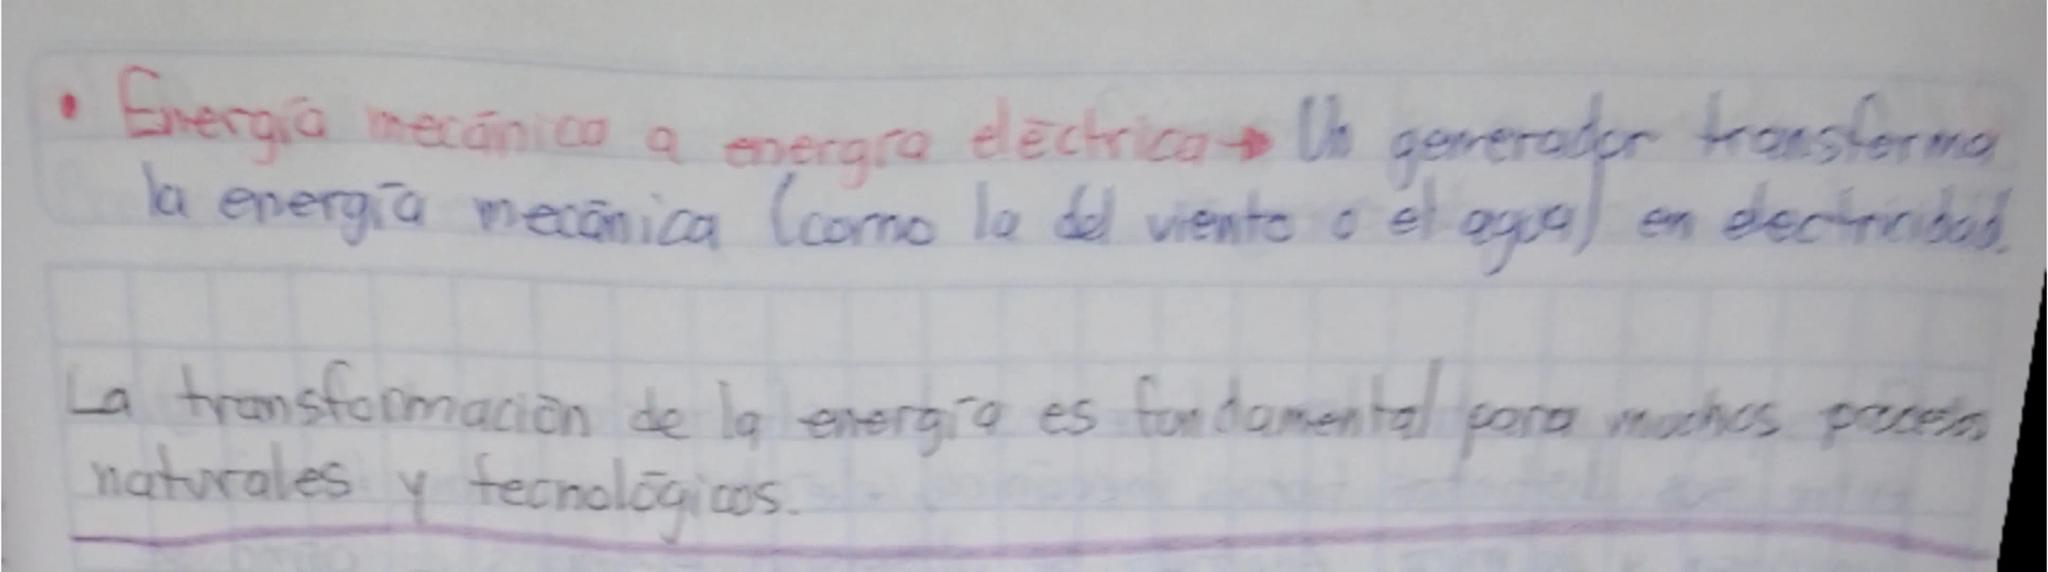 • Energía mecánica a energía eléctrica → Un generador transforma
la energía mecánica (como la del viento o el agua) en electricidad.
La transformación de la energía es fundamental para muchos procesos
naturales y tecnológicos.